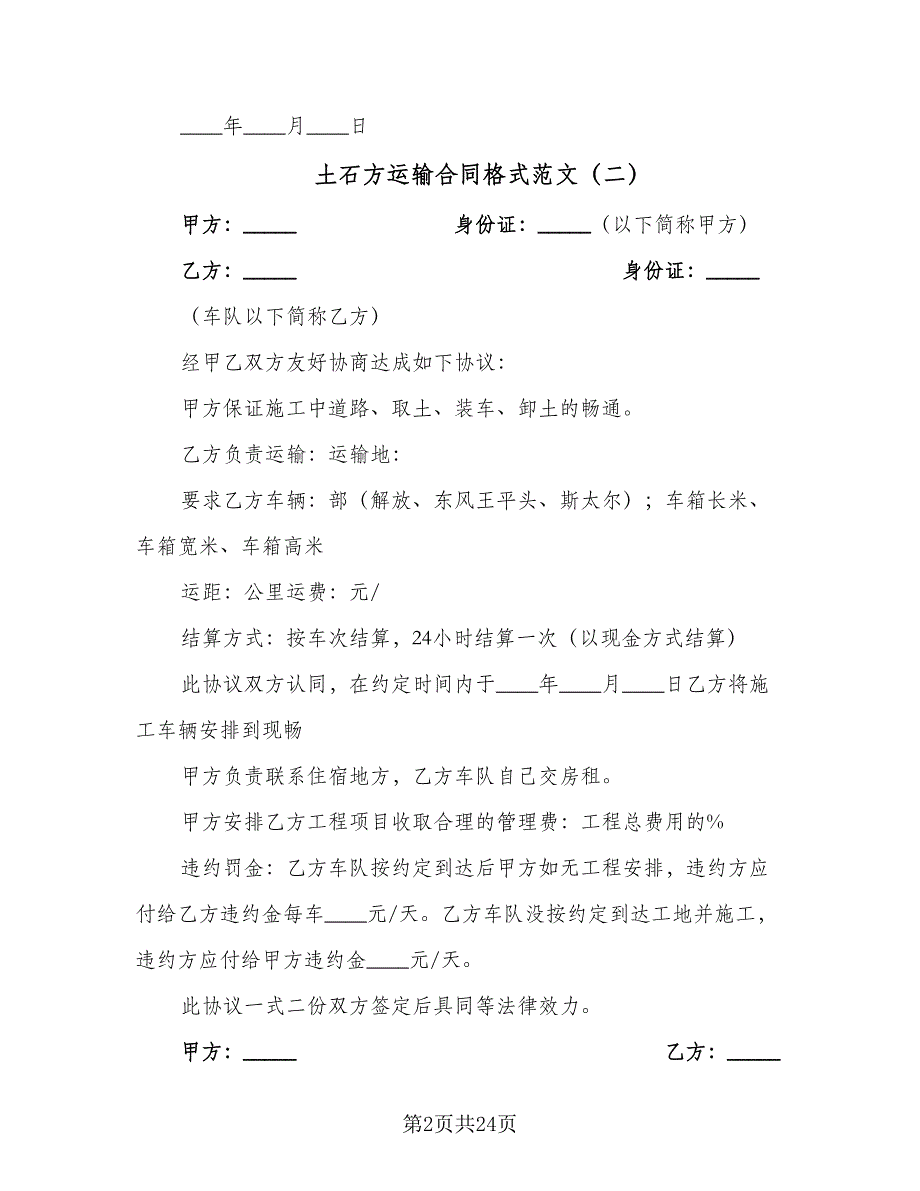 ____年____月____日
土石方运输合同格式范文（二）
甲方：_____ 身份证：_____（以下简称甲方）
乙方：_____ 身份证：_____
（车队以下简称乙方）
经甲乙双方友好协商达成如下协议：
甲方保证施工中道路、取土、装车、卸土的畅通。
乙方负责运输：运输地：
要求乙方车辆：部（解放、东风王平头、斯太尔）；车箱长米、
车箱宽米、车箱高米
运距：公里运费：元/
结算方式：按车次结算，24小时结算一次（以现金方式结算）
此协议双方认同，在约定时间内于____年____月____日乙方将施
工车辆安排到现畅
甲方负责联系住宿地方，乙方车队自己交房租。
甲方安排乙方工程项目收取合理的管理费：工程总费用的%
违约罚金：乙方车队按约定到达后甲方如无工程安排，违约方应
付给乙方违约金每车____元/天。乙方车队没按约定到达工地并施工，
违约方应付给甲方违约金____元/天。
此协议一式二份双方签定后具同等法律效力。
甲方：_____ 乙方：_____
第2页共24页